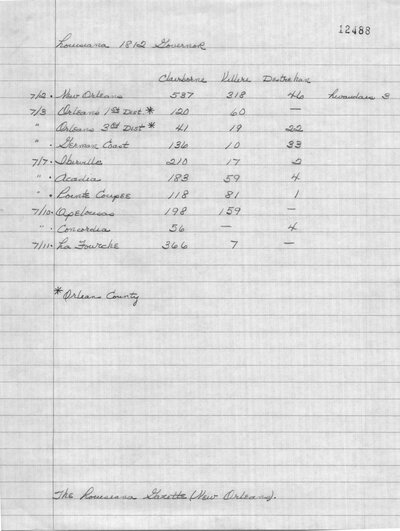 12488
Louisiana 1812 Governor
Claiborne Villere Destrehan
7/2 · New Orleans 537 318 46 Livaudais 3
7/3 Orleans 1st Dist * 120 60 —
" Orleans 3rd Dist * 41 19 22
" · German Coast 136 10 33
7/7 · Iberville 210 17 2
" · Acadia 183 59 4
" · Pointe Coupee 118 81 1
7/10 · Opelousas 198 159 —
" · Concordia 56 — 4
7/11 · La Fourche 366 7 —
* Orleans County
The Louisiana Gazette (New Orleans).